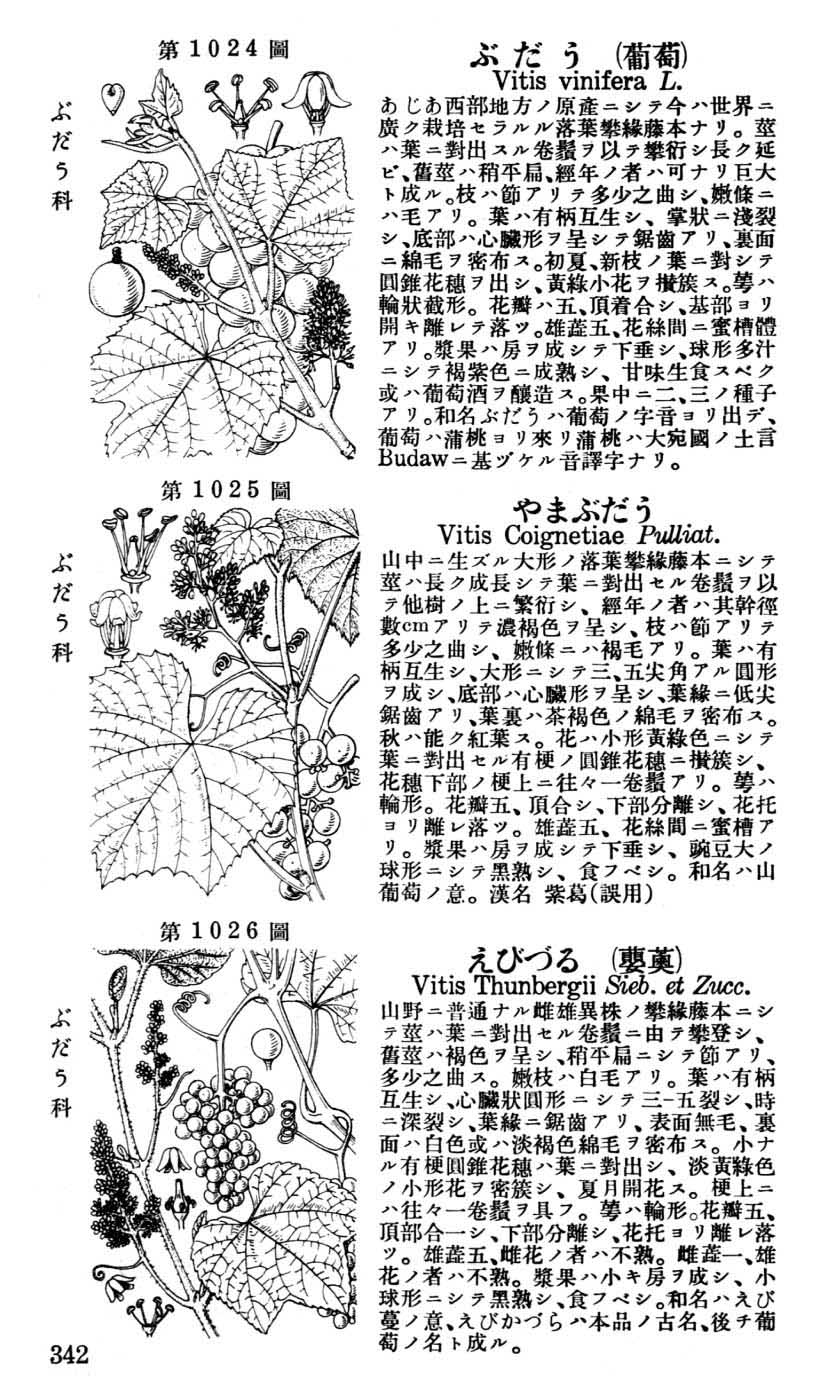 第1024圖
ぶだう科
ぶだう (葡萄)
Vitis vinifera L.
あじあ西部地方ノ原產ニシテ今ハ世界ニ
廣ク栽培セラルル落葉攀緣藤本ナリ。莖
ハ葉ニ對出スル卷鬚ヲ以テ攀衍シ長ク延
ビ、舊莖ハ稍平扁、經年ノ者ハ可ナリ巨大
ト成ル。枝ハ節アリテ多少之曲シ、嫩條ニ
ハ毛アリ。葉ハ有柄互生シ、掌狀ニ淺裂
シ、底部ハ心臟形ヲ呈シテ鋸齒アリ、裏面
ニ綿毛ヲ密布ス。初夏、新枝ノ葉ニ對シテ
圓錐花穗ヲ出シ、黃綠小花ヲ攅簇ス。萼ハ
輪狀截形。花瓣ハ五、頂着合シ、基部ヨリ
開キ離レテ落ツ。雄蕋五、花絲間ニ蜜槽體
アリ。漿果ハ房ヲ成シテ下垂シ、球形多汁
ニシテ褐紫色ニ成熟シ、甘味生食スベク
或ハ葡萄酒ヲ釀造ス。果中ニ二、三ノ種子
アリ。和名ぶだうハ葡萄ノ字音ヨリ出デ、
葡萄ハ蒲桃ヨリ來リ蒲桃ハ大宛國ノ土言
Budawニ基ヅケル音譯字ナリ。
第1025圖
ぶだう科
やまぶだう
Vitis Coignetiae Pulliat.
山中ニ生ズル大形ノ落葉攀緣藤本ニシテ
莖ハ長ク成長シテ葉ニ對出セル卷鬚ヲ以
テ他樹ノ上ニ繁衍シ、經年ノ者ハ其幹徑
數cmアリテ濃褐色ヲ呈シ、枝ハ節アリテ
多少之曲シ、嫩條ニハ褐毛アリ。葉ハ有
柄互生シ、大形ニシテ三、五尖角アル圓形
ヲ成シ、底部ハ心臟形ヲ呈シ、葉緣ニ低尖
鋸齒アリ、葉裏ハ茶褐色ノ綿毛ヲ密布ス。
秋ハ能ク紅葉ス。花ハ小形黃綠色ニシテ
葉ニ對出セル有梗ノ圓錐花穗ニ攅簇シ、
花穗下部ノ梗上ニ往々一卷鬚アリ。萼ハ
輪形。花瓣五、頂合シ、下部分離シ、花托
ヨリ離レ落ツ。雄蕋五、花絲間ニ蜜槽ア
リ。漿果ハ房ヲ成シテ下垂シ、豌豆大ノ
球形ニシテ黑熟シ、食フベシ。和名ハ山
葡萄ノ意。漢名 紫葛(誤用)
第1026圖
ぶだう科
えびづる (蘡薁)
Vitis Thunbergii Sieb. et Zucc.
山野ニ普通ナル雌雄異株ノ攀緣藤本ニシ
テ莖ハ葉ニ對出セル卷鬚ニ由テ攀登シ、
舊莖ハ褐色ヲ呈シ、稍平扁ニシテ節アリ、
多少之曲ス。嫩枝ハ白毛アリ。葉ハ有柄
互生シ、心臟狀圓形ニシテ三-五裂シ、時
ニ深裂シ、葉緣ニ鋸齒アリ、表面無毛、裏
面ハ白色或ハ淡褐色綿毛ヲ密布ス。小ナ
ル有梗圓錐花穗ハ葉ニ對出シ、淡黃綠色
ノ小形花ヲ密簇シ、夏月開花ス。梗上ニ
ハ往々一卷鬚ヲ具フ。萼ハ輪形。花瓣五、
頂部合一シ、下部分離シ、花托ヨリ離レ落
ツ。雄蕋五、雌花ノ者ハ不熟。雌蕋一、雄
花ノ者ハ不熟。漿果ハ小キ房ヲ成シ、小
球形ニシテ黑熟シ、食フベシ。和名ハえび
蔓ノ意、えびかづらハ本品ノ古名、後チ葡
萄ノ名ト成ル。
342